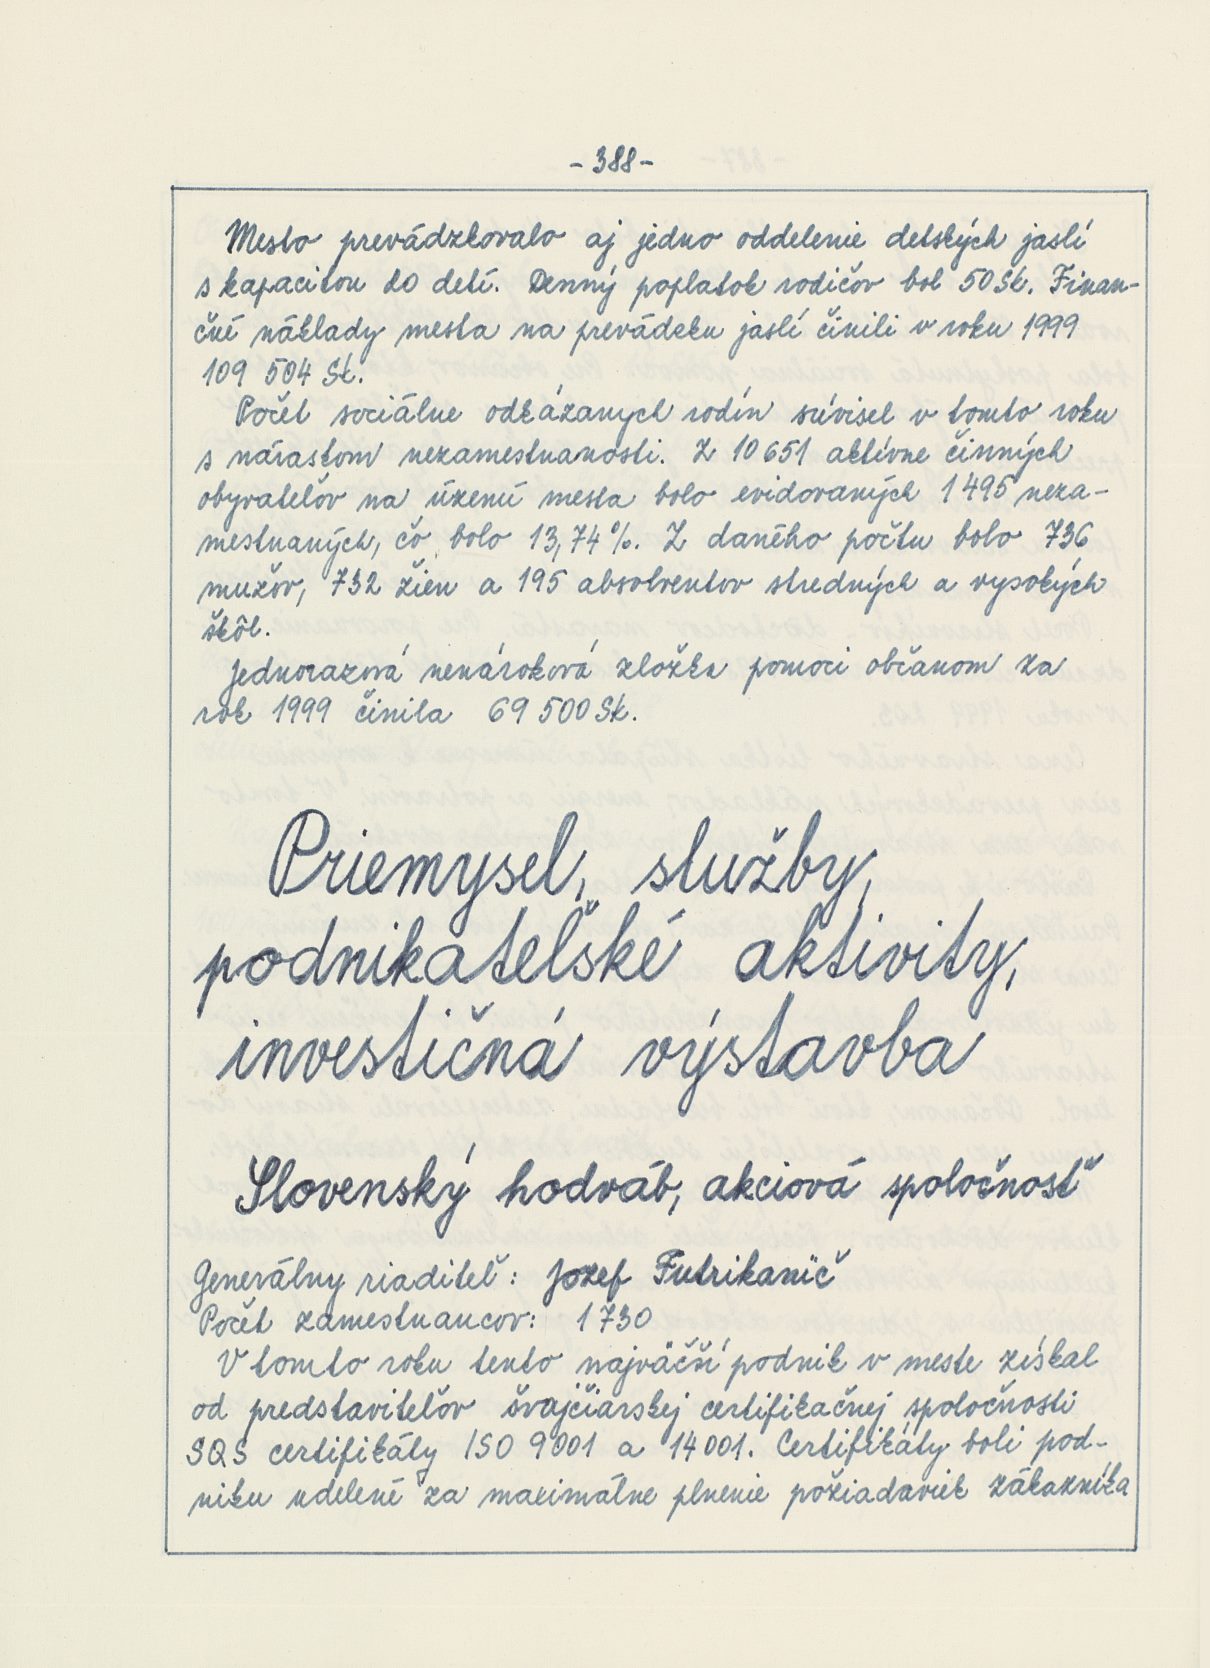 - 388 -
Mesto prevádzkovalo aj jedno oddelenie detských jaslí
s kapacitou 20 detí. Denný poplatok rodičov bol 50 Sk. Finan-
čné náklady mesta na prevádzku jaslí činili v roku 1999
109 504 Sk.
Počet sociálne odkázaných rodín súvisel v tomto roku
s nárastom nezamestnanosti. Z 10 651 aktívne činných
obyvateľov na území mesta bolo evidovaných 1 495 neza-
mestnaných, čo bolo 13,74 %. Z daného počtu bolo 736
mužov, 732 žien a 195 absolventov stredných a vysokých
škôl.
Jednorazová nenároková zložka pomoci občanom za
rok 1999 činila 69 500 Sk.
Priemysel, služby,
podnikateľské aktivity,
investičná výstavba
Slovenský hodváb, akciová spoločnosť
Generálny riaditeľ: Jozef Futrikanič
Počet zamestnancov: 1 730
V tomto roku tento najväčší podnik v meste získal
od predstaviteľov švajčiarskej certifikačnej spoločnosti
SQS certifikáty ISO 9001 a 14 001. Certifikáty boli pod-
niku udelené za maximálne plnenie požiadaviek zákazníka